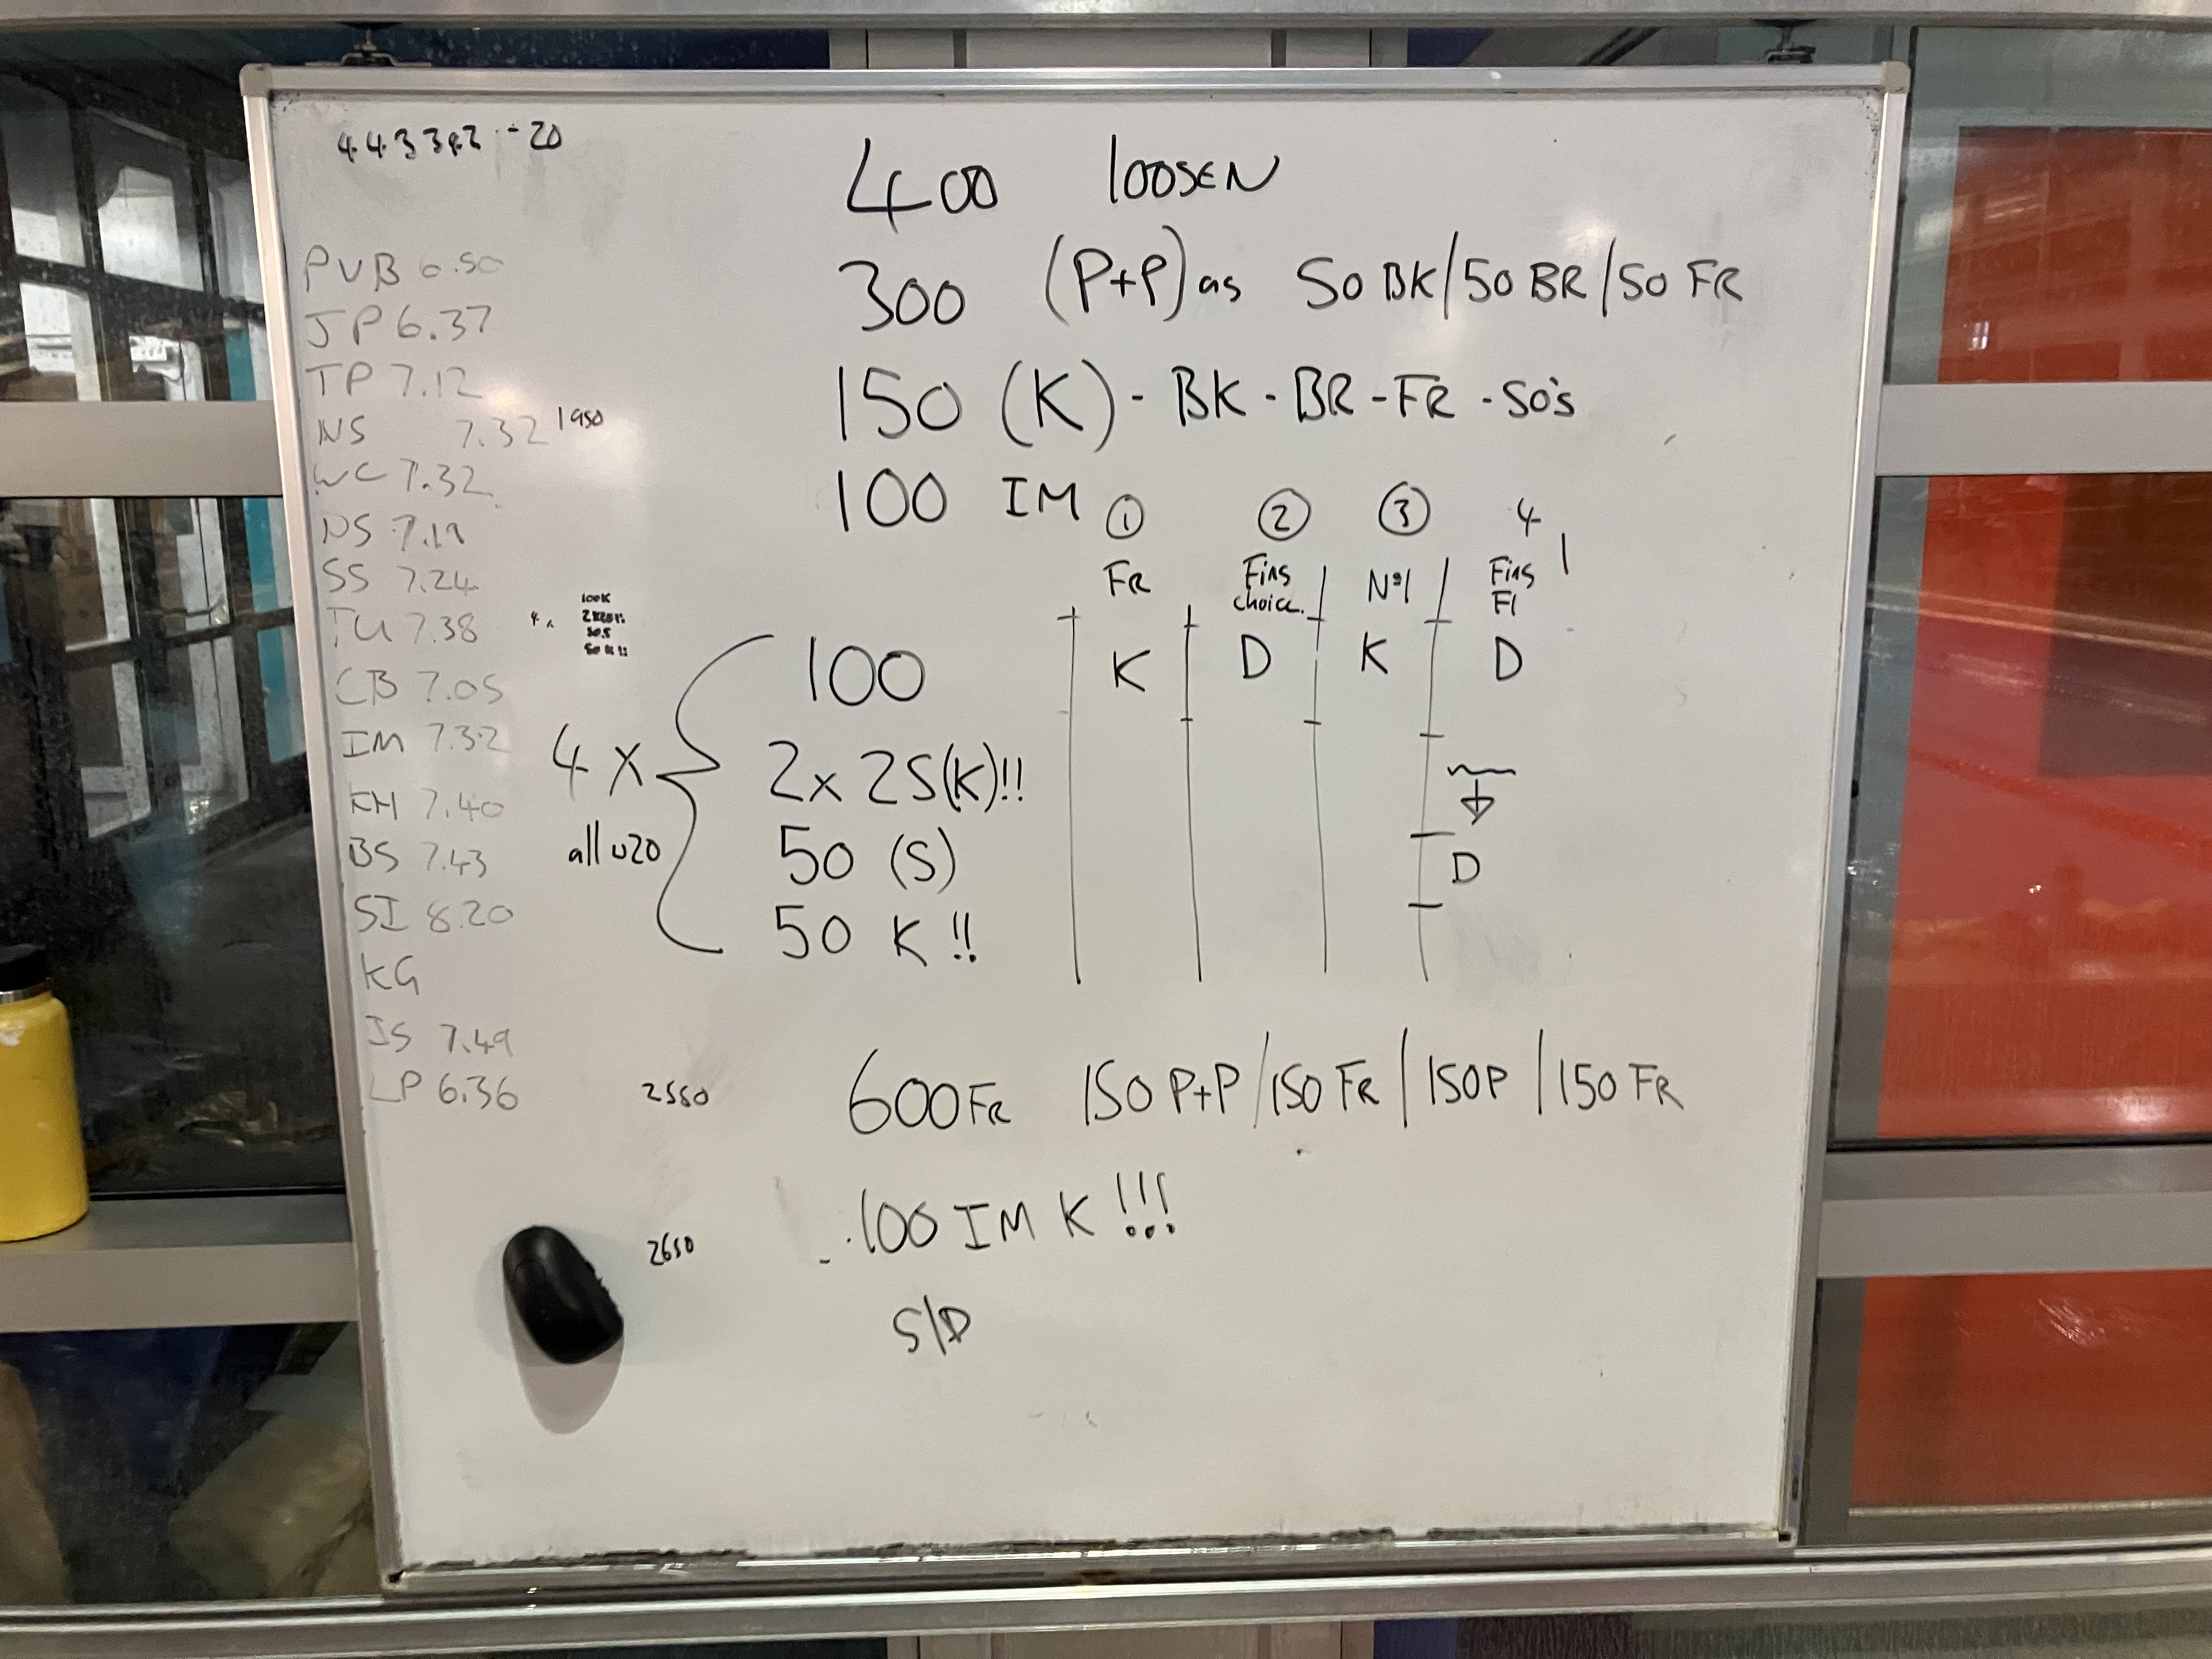 443342 - 20
400 LOOSEN
300 (P+P) as 50 BK/50 BR/50 FR
150 (K) - BK - BR - FR - 50's
100 IM
① ② ③ 4
FR Fins choice. Nº1 Fins Fl
100 K D K D
4 x 2x 25(K)!!
all u20 50 (S) D
50 K !!
600 FR 150 P+P/150 FR/150P/150 FR
100 IM K !!!
S/D
PVB 6.50
JP 6.37
TP 7.12
NS 7.32 1950
WC 7.32
NS 7.19
SS 7.24
TU 7.38
CB 7.05
IM 7.32
KH 7.40
BS 7.43
SI 8.20
KG
JS 7.49
LP 6.36
4 x
100K
50S
50 K !!
2550
2650